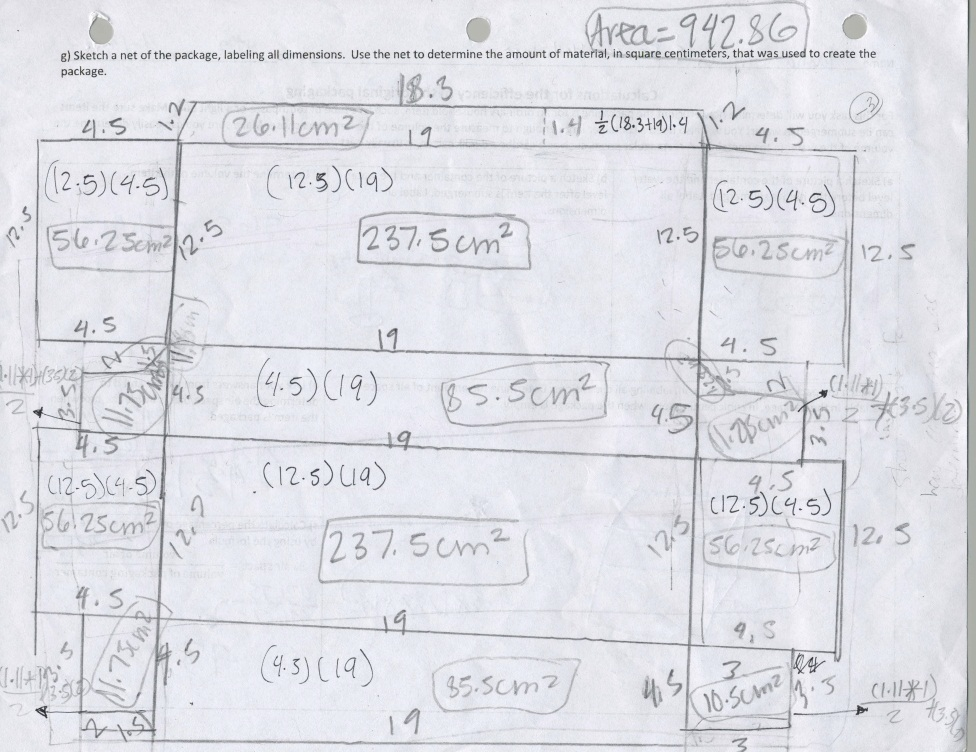 Area = 942.86
g) Sketch a net of the package, labeling all dimensions. Use the net to determine the amount of material, in square centimeters, that was used to create the
package.
18.3
3
4.5
1.2
26.11cm²
19
1.4
½(18.3+19)1.4
1.2
4.5
(12.5)(4.5)
(12.5)(19)
(12.5)(4.5)
12.5
56.25cm²
12.5
237.5cm²
12.5
56.25cm²
12.5
4.5
19
4.5
2
3.5
11.75cm²
4.5
(4.5)(19)
85.5cm²
4.5
2
3.5
2
+(3.5)(2)
4.5
19
4.5
(12.5)(4.5)
(12.5)(19)
(12.5)(4.5)
12.5
56.25cm²
237.5cm²
12.5
56.25cm²
12.5
4.5
19
4.5
11.75cm²
4.5
(4.5)(19)
85.5cm²
4.5
3
10.5cm²
3.5
2
2
2
1.5
19
3